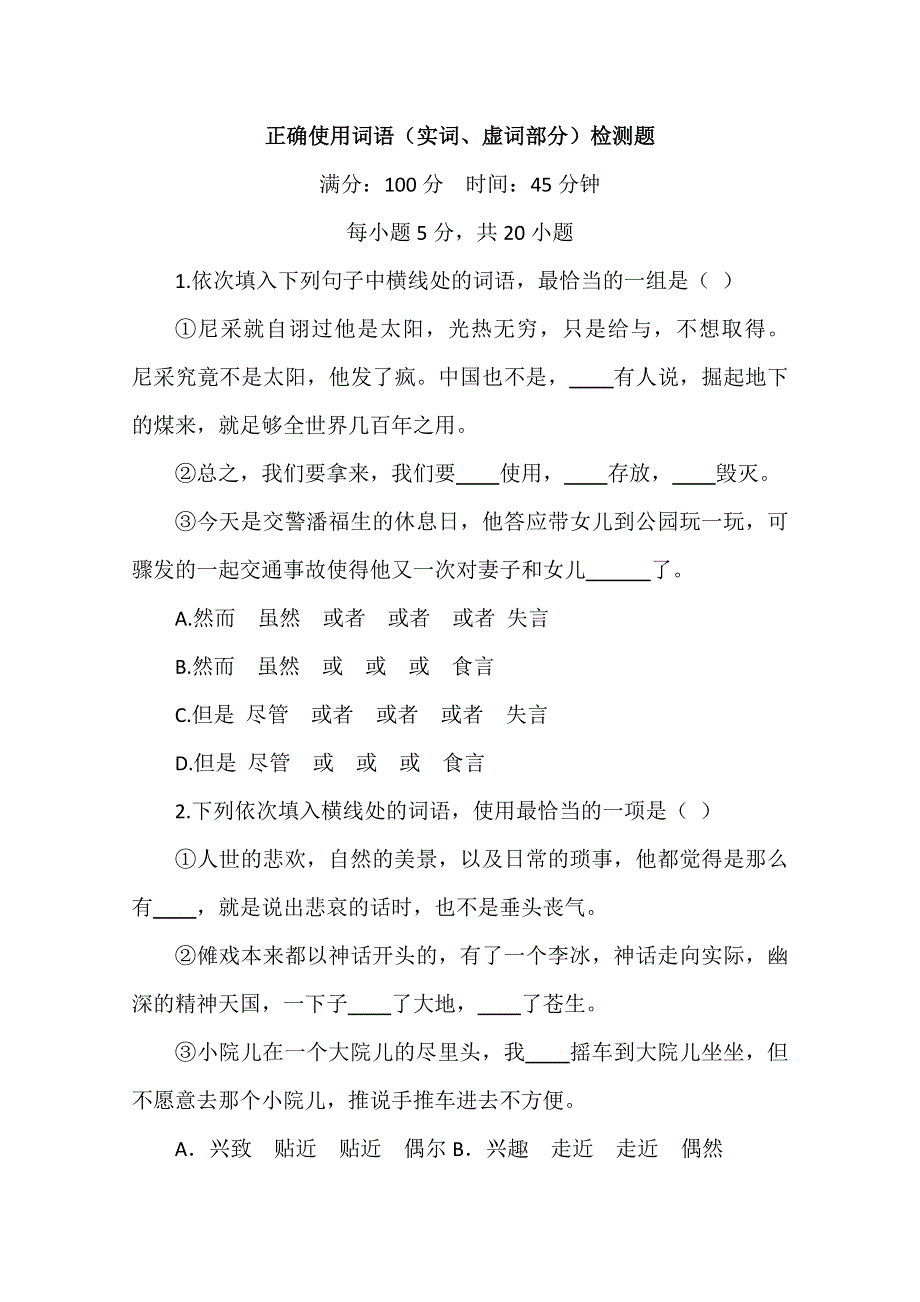 正确使用词语（实词、虚词部分）检测题
满分：100 分　时间：45 分钟
每小题 5 分，共 20 小题
1.依次填入下列句子中横线处的词语，最恰当的一组是（ ）
①尼采就自诩过他是太阳，光热无穷，只是给与，不想取得。
尼采究竟不是太阳，他发了疯。中国也不是，____有人说，掘起地下
的煤来，就足够全世界几百年之用。
②总之，我们要拿来，我们要____使用，____存放，____毁灭。
③今天是交警潘福生的休息日，他答应带女儿到公园玩一玩，可
骤发的一起交通事故使得他又一次对妻子和女儿______了。
A.然而　虽然　或者　或者　或者 失言
B.然而　虽然　或　或　或　食言
C.但是 尽管　或者　或者　或者　失言
D.但是 尽管　或　或　或　食言
2.下列依次填入横线处的词语，使用最恰当的一项是（ ）
①人世的悲欢，自然的美景，以及日常的琐事，他都觉得是那么
有____，就是说出悲哀的话时，也不是垂头丧气。
②傩戏本来都以神话开头的，有了一个李冰，神话走向实际，幽
深的精神天国，一下子____了大地，____了苍生。
③小院儿在一个大院儿的尽里头，我____摇车到大院儿坐坐，但
不愿意去那个小院儿，推说手推车进去不方便。
A．兴致　贴近　贴近　偶尔 B．兴趣　走近　走近　偶然